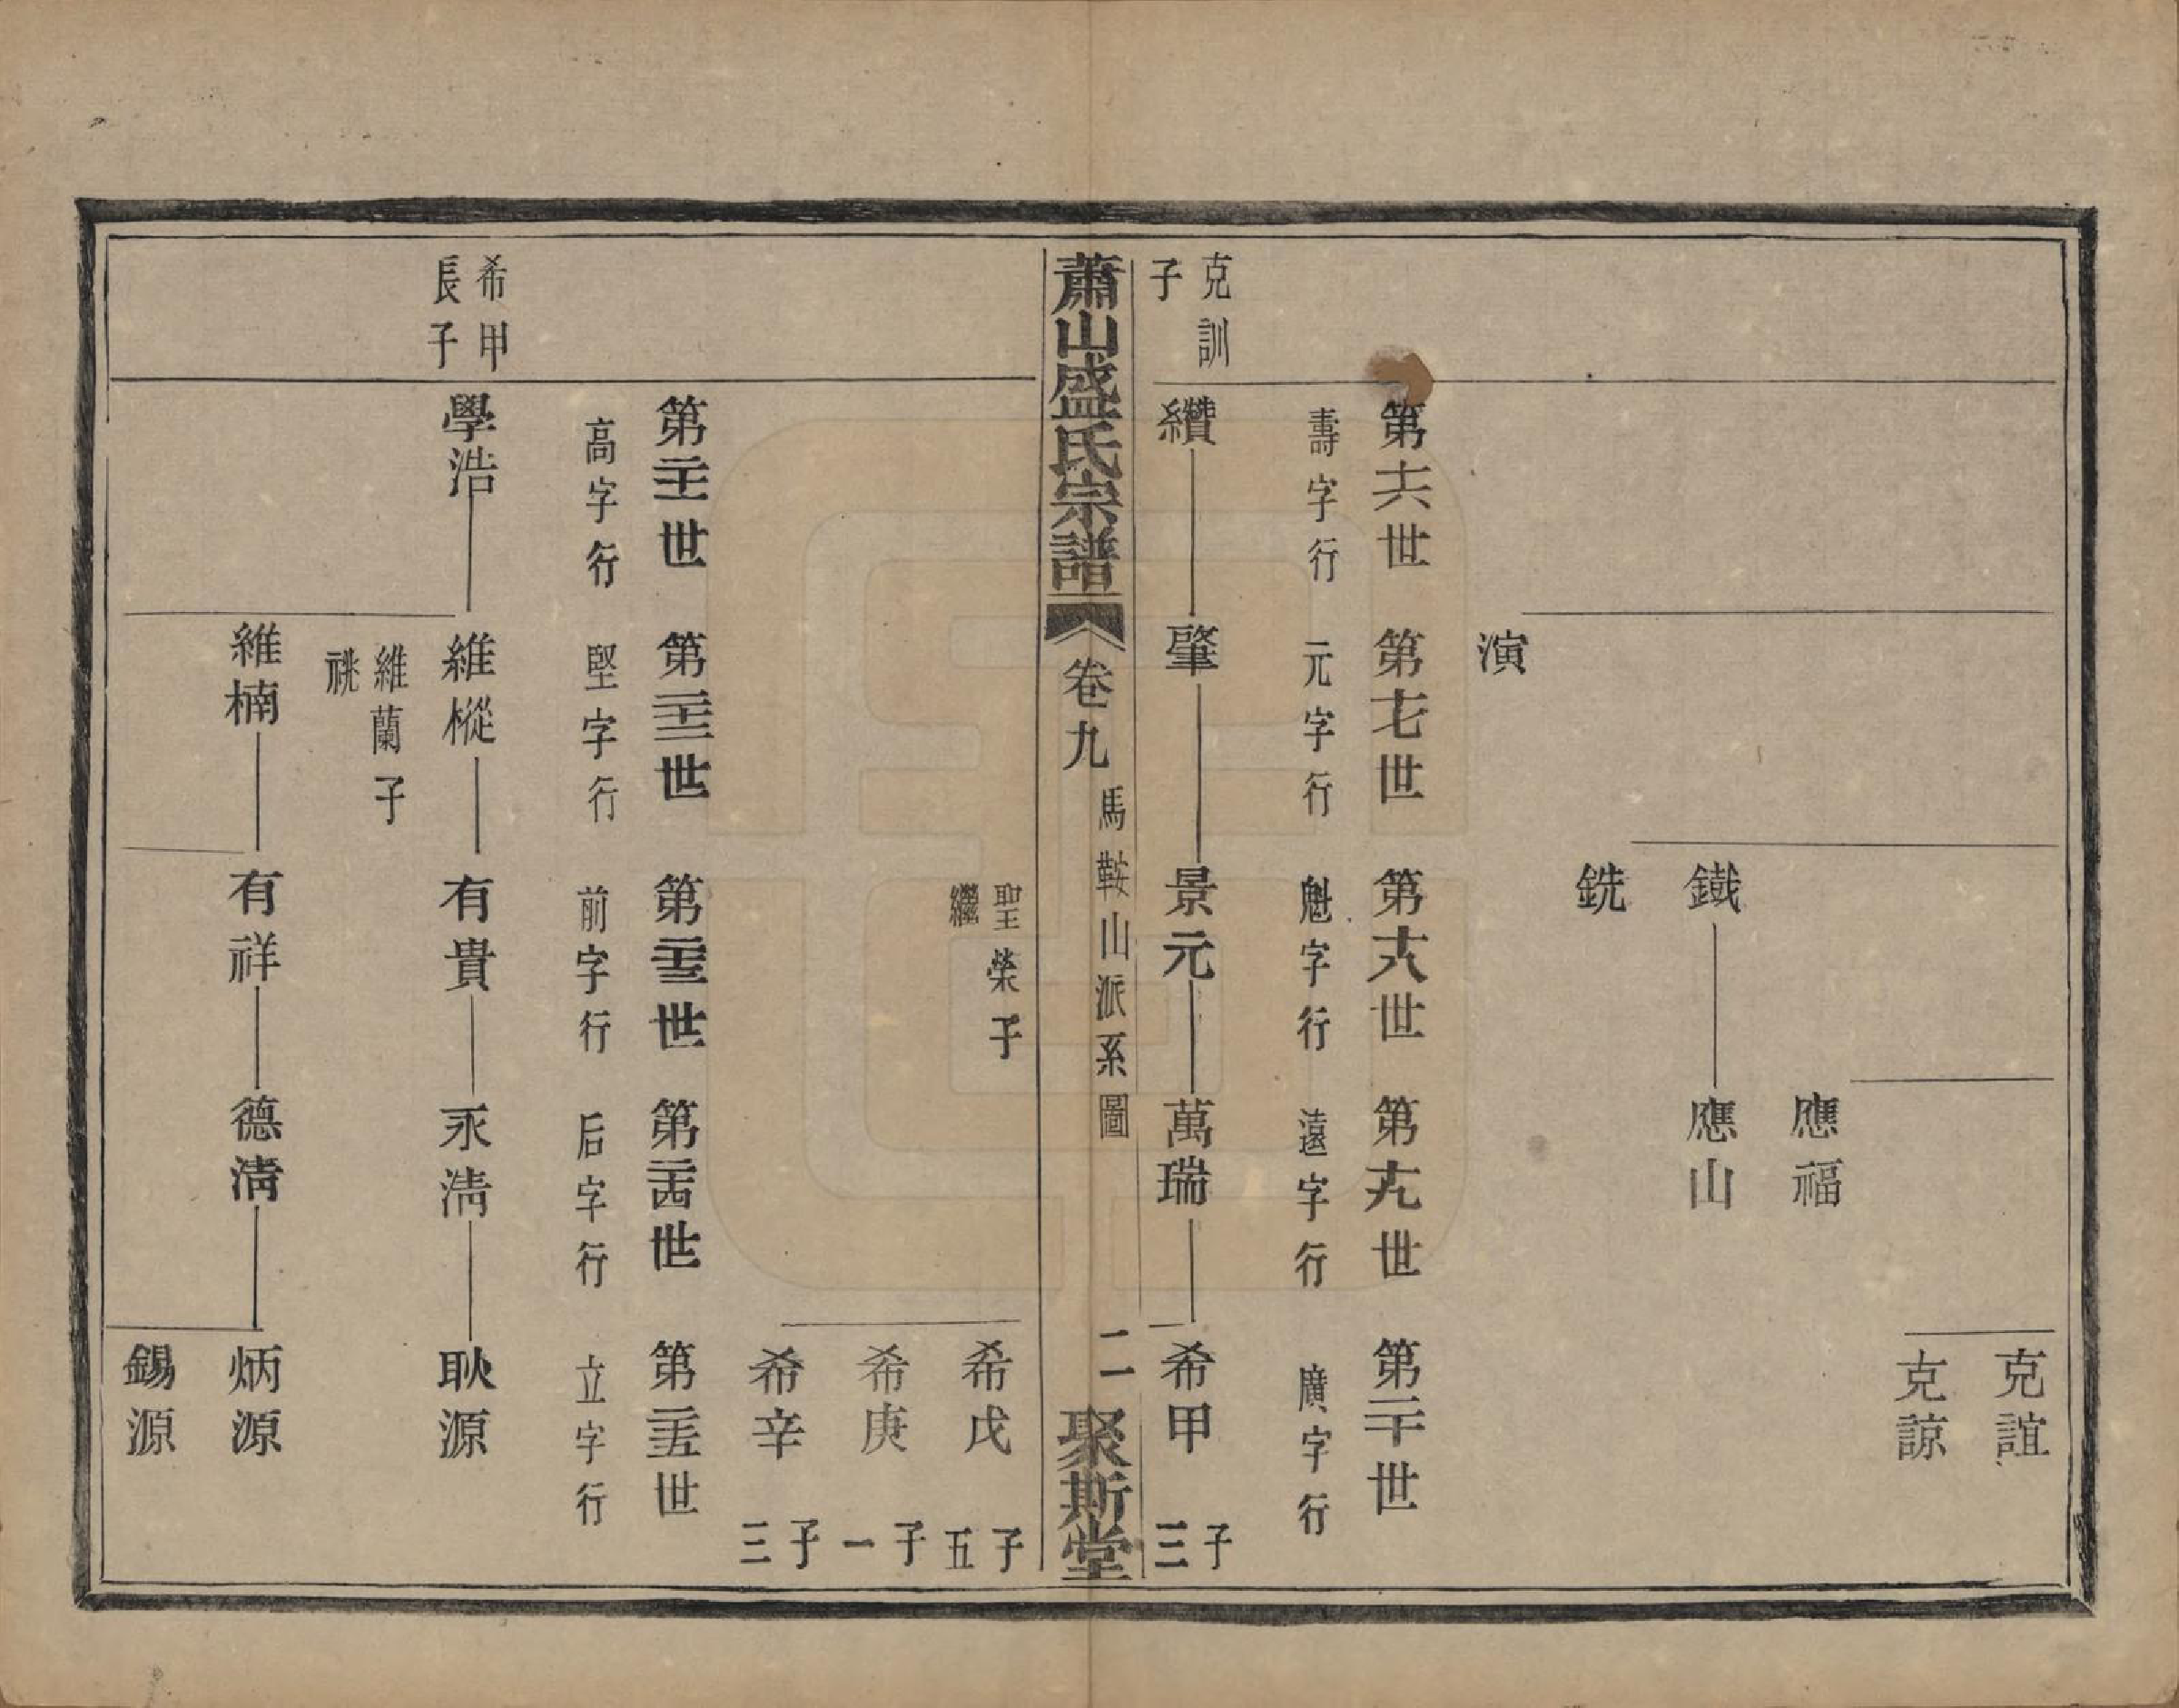 克誼
克諒
應福
鐵 應山
銑
演
第十六世 第十七世 第十八世 第十九世 第二十世
壽字行 元字行 魁字行 遠字行 廣字行
克訓
子
纘 肇 景元 萬瑞 希甲 子
三
蕭山盛氏宗譜 卷九 馬鞍山派系圖 二 聚斯堂
聖榮子
繼
希戊 子
五
希庚 子
一
希辛 子
三
第二十一世 第二十二世 第二十三世 第二十四世 第二十五世
高字行 堅字行 前字行 后字行 立字行
希甲
長子
學浩 維樅 有貴 永淸 耿源
維蘭子
祧
維楠 有祥 德淸 炳源
錫源